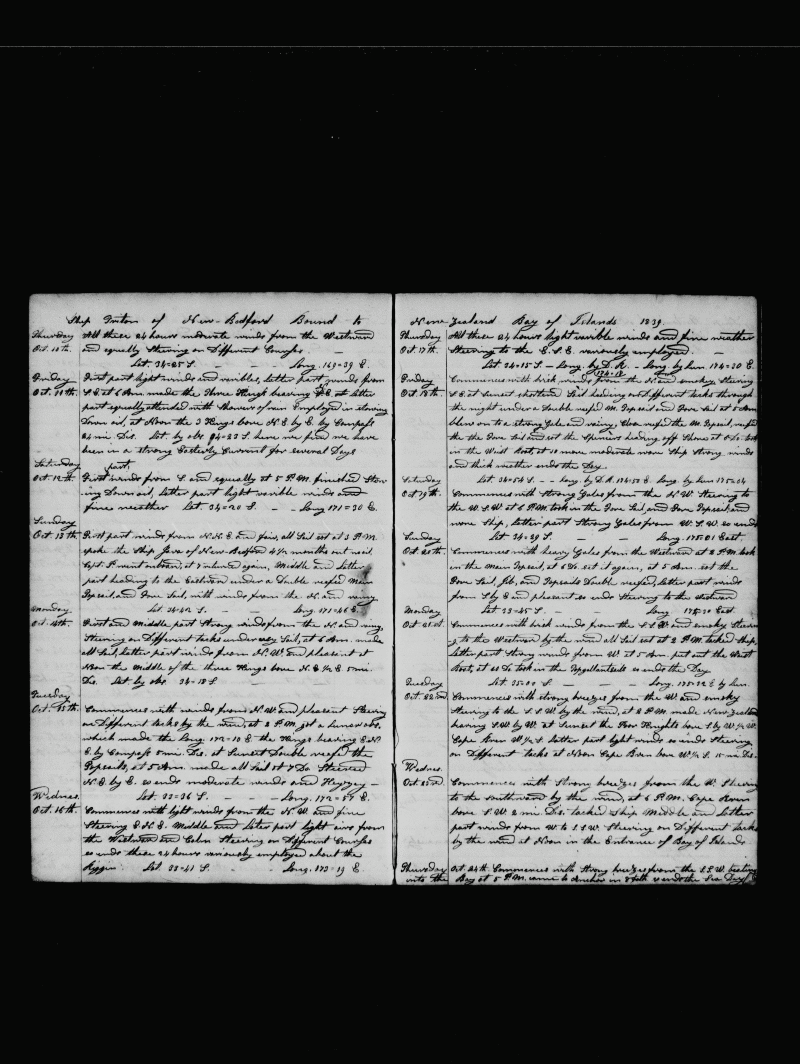 Ship Triton of New-Bedford Bound to
Thursday All these 24 hours moderate winds from the Westward
Oct. 10th. and equally Steering on Different Courses. —
Lat. 34=25 S. — — — Long. 169=39 E.
Friday First part light winds and varibles, latter part winds from
Oct. 11th. S.E. at 6 A.m. made the Three Kings bearing E. at latter
part equally attended with Showers of rain Employed in stowing
Down oil, at Noon the 3 Kings bore N.E. by E. by Compass
24 mi. Dis. Lat. by obs. 34=23 S. here we find we have
been in a strong Easterly Current for several Days
Saturday past.
Oct. 12th. First winds from S. and equally at 5 P.M. finished Stow
-ing Down oil, latter part light varible winds and
fine weather Lat. 34=20 S. - - Long 171=30 E.
Sunday
Oct. 13th. First part winds from N.N.E. and fair, all Sail set at 3 P.M.
spoke the Ship Java of New-Bedford 4½ months out
Capt. P. went at returned again, Middle and Latter
part heading to the Eastward under a double reefed Main
Topsail, and Fore Sail, with winds from the N. and rainy
Monday Lat. 34=42 S. - - Long. 171=46 E.
Oct. 14th. First and Middle part Strong winds from the N. and rainy,
Steering on Different tacks under easy Sail, at 6 A.m. made
all Sail, latter part winds from N.W. and pleasant at
Noon the Middle of the three Kings bore N.E. ½ E. 5 mi.
Dis. Lat by obs. 34=18 S
Tuesday
Oct. 15th. Commences with winds from N.W. and pleasant Steering
on Different tacks by the wind, at 2 P.M. got a Lunar obs.
which made the Long. 172=10 E. the Kings bearing E.N
E. by Compass 5 mi. Dis. at Sunset Double reefed the
Topsails, at 5 A.m. made all Sail at 7 Do Steered
N.E. by E. so ends moderate winds and Heyzy -
Wednes. Lat. 33=36 S. - - - Long. 172=55 E.
Oct. 16th. Commences with light winds from the N.W. and fine
Steering E.N.E. Middle and later part light airs from
the Westward and Calm Steering on Different Courses
so ends these 24 hours variously employed about the
Riggin. Lat. 33=41 S. - - Long. 173=19 E
New Zealand Bay of Islands 1839.
Thursday All these 24 hours light varible winds and fine weather
Oct. 17th. Steering to the E.S.E. variously employed. — —
Lat. 34=15 S. — Long. by D.R. 174=12 - Long by Lun. 174=30 E.
Friday Commences with brisk winds from the N. and smokey Steering
Oct. 18th. S.E. at Sunset shortend Sail heading on different tacks through
the night under a Double reefed M. Topsail and Fore Sail at 5 A.m
blew on to a strong Gale and rainy. Close reefed the M. Topsail, reefed
the the Fore Sail and set the Spencers heading off Shore at 8 Do. took
in the Waist Boat at 10 more moderate wore Ship Strong winds
and thick weather ends the Day
Saturday Lat. 34=54 S. - - Long by D.R. 174=52 E. Long. by Lun 175=04
Oct 19th. Commences with Strong Gales from the N.W. Steering to
the W.S.W. at 6 P.M. took in the Fore Sail, and Fore Topsail, and
wore Ship, latter part Strong Gales from W.S.W. so ends
Sunday Lat. 34=39 S. - - Long. 175=01 East.
Oct 20th. Commences with heavy Gales from the Westward at 2 P.M. took
in the Main Topsail, at 6 Do. set it again, at 5 A.m. set the
Fore Sail, Jib, and Topsails Double reefed, latter part winds
from S. by E. and pleasant so ends Steering to the Westward
Monday Lat 33=45 S. - - Long 175=30 East.
Oct. 21st. Commences with brisk winds from the S.S.W. and smokey Steerin
g to the Westward by the wind all Sail set at 2 P.M. tacked Ship,
latter part Strong winds from W. at 5 A.m. put out the Waist
Boat, at 10 Do. took in the Topgallantsails so ends the Day
Tuesday Lat. 35=00 S. — — — Long. 175=22 E. by Lun.
Oct. 22nd. Commences with strong breezes from the W. and smokey
Steering to the S.S.W. by the wind, at 2 P.M. made New Zealand
bearing S.W. by W. at Sunset the Poor Knights bore S. by W. ½ W.
Cape Bren W. ½ S. latter part light winds so ends Steering
on Different tacks at Noon Cape Bren bore W. ½ S. 15 mi. Dis.
Wednes.
Oct. 23rd. Commences with Strong breezes from the W. Steering
to the Southward by the wind, at 6 P.M. Cape Bren
bore S.W. 2 mi. Dis. tacked Ship Middle and Latter
part winds from W. to S.S.W. Steering on Different tacks
by the wind at Noon in the Entrance of Bay of Islands
Thursday Oct. 24th Commences with Strong breezes from the S.S.W. beating
into the Bay at 5 P.M. came to Anchor in 5 fath so ends the Sea Day